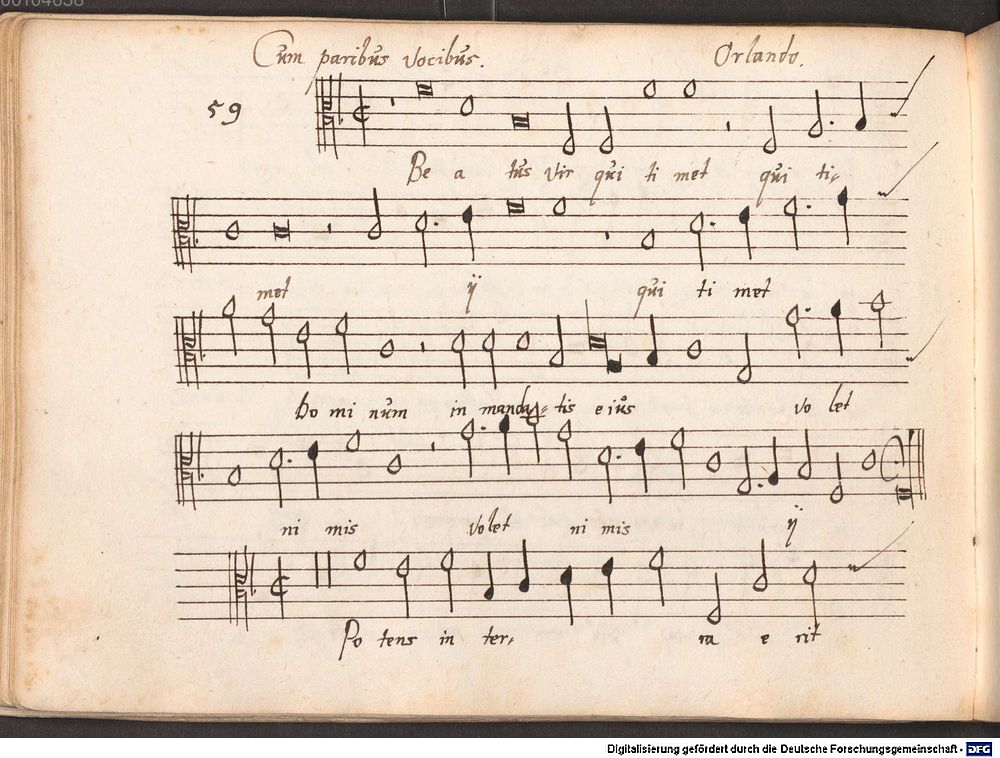 00104638
Cum paribus vocibus. Orlando.
59
Be a tus vir qui ti met qui ti-
met ij qui ti met
Do mi num in manda- tis eius vo let
ni mis volet ni mis ij
Po tens in ter- ra e rit
Digitalisierung gefördert durch die Deutsche Forschungsgemeinschaft - DFG